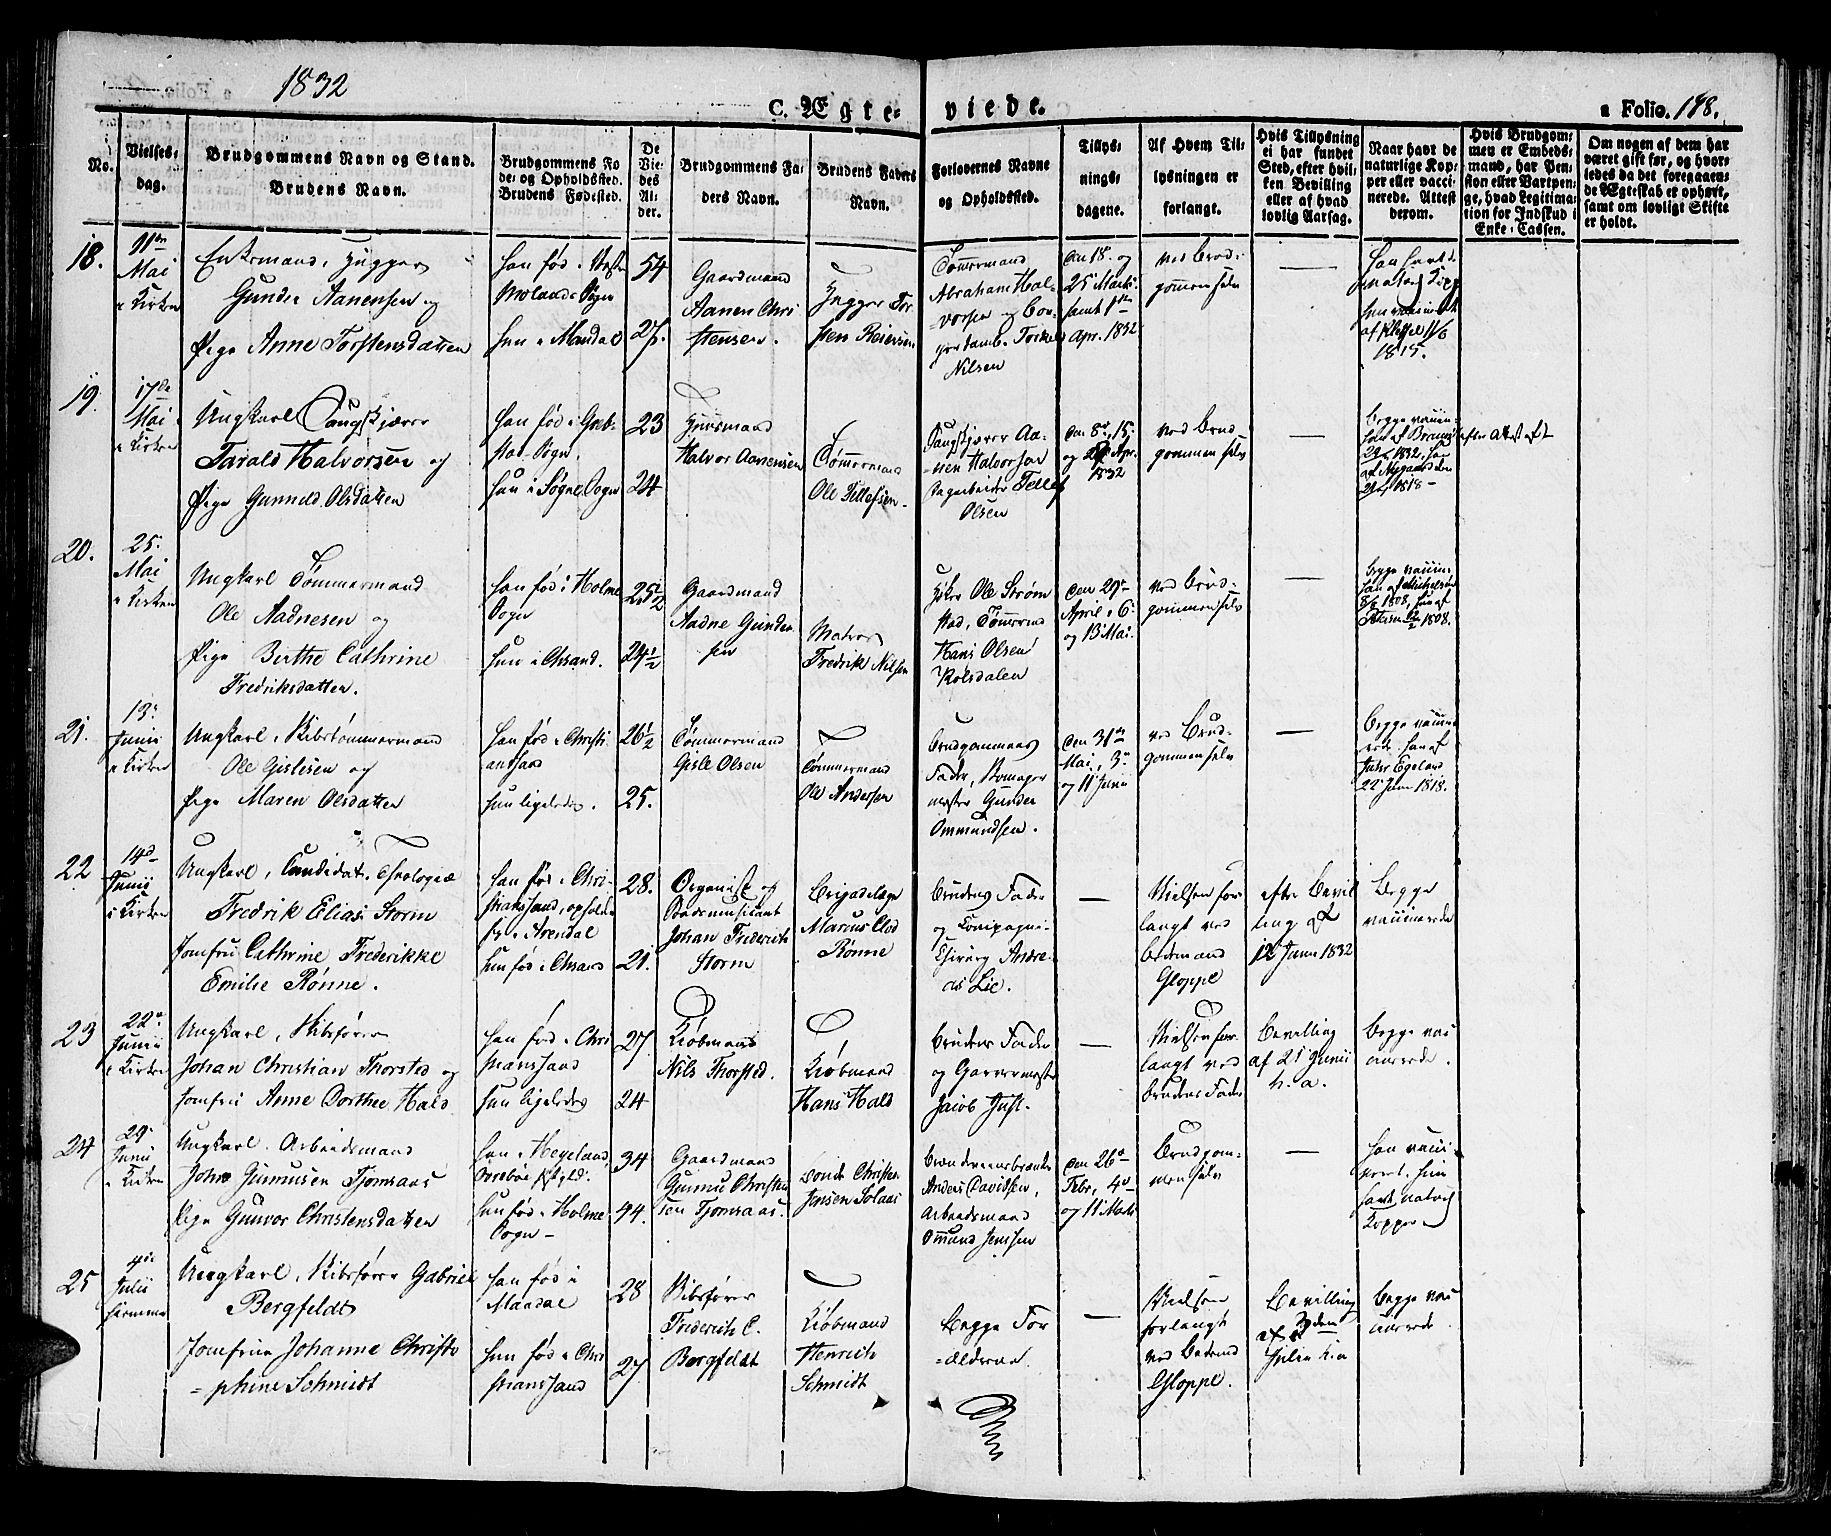 1832
C. Ægte-
viede.
a Folio. 198.
No.
Vielses-
dag.
Brudgommens Navn og Stand.
Brudens Navn.
Brudgommens Fø
de- og Opholdssted.
Brudens Fødested.
De
Vie-
des
Al-
der.
Brudgommens Fa-
ders Navn.
Brudens Faders
Navn.
Forlovernes Navne
og Opholdssted.
Tillys-
nings-
dagene.
Af Hvem Til-
lysningen er
forlangt.
Hvis Tillysning
ei har fundet
Sted, efter hvil-
ken Bevilling
eller af hvad
lovlig Aarsag.
Naar havt de
naturlige Kop-
per eller vacci-
nerede. Attest
derom.
Hvis Brudgom-
men er Embeds-
mand, har Pen-
sion eller Vartpen-
ge, hvad Legitima-
tion for Indskud i
Enke-Cassen.
Om nogen af dem har
været gift før, og hvor-
ledes da det foregaaen-
de Ægteskab er ophørt,
samt om lovligt Skifte
er holdt.
18.
11te
Mai
i Kirken
Enkemand,
Gunder Aanensen og
Pige Anne Torstensdatter
han fød i
Molands Sogn
hun i Mandal
54
27.
Gaardmand
Aanen Chri
stensen.
Tor-
sten Reiersen
Tømmermand
Abraham Hal-
vorsen og
Torkel
Nilsen
den 18. og
25 Marts
samt 1te
Apr. 1832
ved Brud-
gommen selv
han havt d.
naturl. Kopp
hun vaccineret
1815.
19.
17de
Mai
i Kirken
Ungkarl Laugskjærer
Tarald Halvorsen og
Pige Gunnild Olsdatter
han fød i
Sogn.
hun i Søgne Sogn
23
24
Huusmand
Halvor Aanensen
Tømmermand
Ole Tellefsen.
Laugskjærer Aa-
nen Halvorsen
Dagarbeider Tellef
Olsen
den 8de, 15.
og Apr.
1832
ved Brud-
gommen selv
Begge vaccin.
1832, hun
af Nygaard den
1818
efter Attest af
20.
25.
Mai
i Kirken
Ungkarl Tømmermand
Ole Aadnesen og
Pige Berthe Cathrine
Fredriksdatter.
han fød i Holme
Sogn
hun i Chrsand.
25½
24½
Gaardmand
Aadne Gunder
sen
Matros
Fredrik Nilsen
Ole Strøm
stad, Tømmermd
Hans Olsen
Kolsdalen
den 29de
April, 6.
og 13 Mai.
ved Brud-
gommen selv
Begge vaccin.
han af Michelsen
1808, hun af
1808.
21.
13.
Junii
i Kirken
Ungkarl, Skibstømmermand
Ole Gislesen og
Pige Maren Olsdatter
han fød i Christi
ansand
hun ligeledes.
26½
25.
Tømmermand
Gisle Olsen
Tømmermand
Ole Andersen
Brudgommens
Fader,
mester Gunder
Ommundsen.
den 31te
Mai, 3.
og 11 Junii
ved Brud-
gommen selv
Begge vaccine
rede. han af
Egeland
22 Juni 1818.
22
14de
Junii
i Kirken
Ungkarl, Candidat. Theologiæ
Frederik Elias Storm
Jomfru Cathrine Frederikke
Emilie Rønne.
han fød i Chri-
stiansand, ophold
er i Arendal
hun fød i Chrsand
28.
21.
Organist og
Stadsmusicant
Johan Friderich
Storm
Brigadelæge
Marcus Clod
Rønne
Brudens Fader
og Compagni-
Chirurg Andre-
as Lie.
Vielsen for
langt ved
Bedemand
Gloppe
efter Bevil
ling af
12 Junii 1832
Begge
vaccinerede
23
22de
Junii
i Kirken
Ungkarl, Skibsfører
Johan Christian Thorsted og
Jomfru Anne Dorthee Hald
han fød i Chri
stiansand
hun ligeledes
27
24
Kiøbmand
Nils Thorsted.
Kiøbmand
Hans Hald
Brudens Fader
og Garvermester
Jacob Just.
Vielsen for
langt ved
Brudens Fader
Bevilling
af 21 Junii
h. a.
Begge vac
cinerede.
24
29.
Junii
i Kirken
Ungkarl. Arbeidsmand
John Gunnusen Tjomsaas
Pige Gunvor Christensdatter
han i Hegeland,
hun fød i Holme
Sogn
34
44.
Gaardmand
Gunnu Christen
sen Tjomsaas.
Bonde Christen
Jensen Solaas
Anders Davidsen,
Arbeidsmand
Omund Jenssen
den 26de
Febr, 4de
og 11 Marts
Brudgom-
men selv
han vacci
neret. hun
havt naturl
Kopper
25
Julii
hjemme
Ungkarl, Skibsfører Gabriel
Bergfeldt
Jomfrue Johanne Christo
phine Schmidt
han fød i
Mandal
hun fød i Chri
stiansand
28
27
Skibsfører
Friderich C.
Bergfeldt
Kiøbmand
Henrich
Schmidt
Begge For
ældrene.
Vielsen
forlangt
ved Bedemd
Gloppe.
Bevilling
af 3dem
Julii h.a
Begge vac
cinerede.